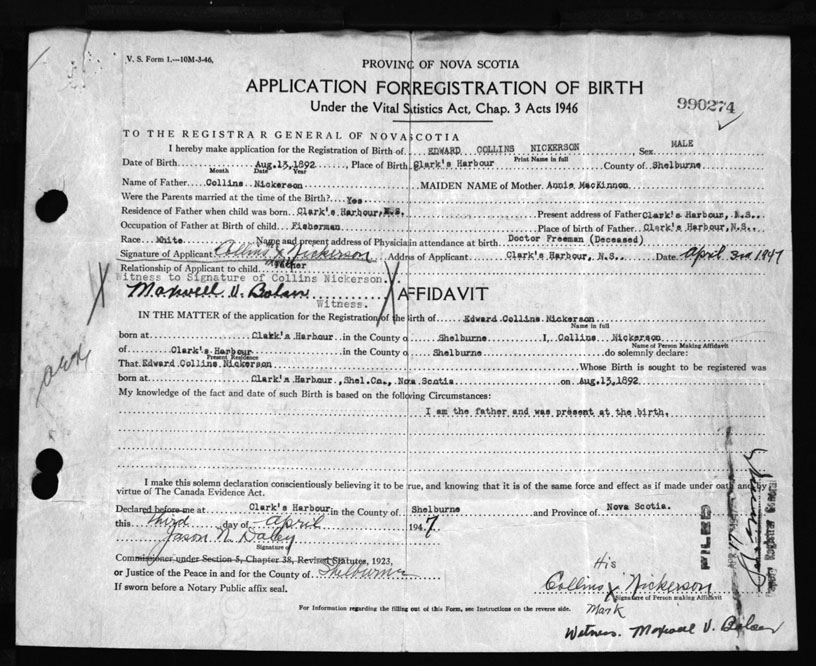 V. S. Form 1.—10M-3-46.
PROVINC OF NOVA SCOTIA
APPLICATION FORREGISTRATION OF BIRTH
Under the Vital Statistics Act, Chap. 3 Acts 1946
990274
TO THE REGISTRAR GENERAL OF NOVA SCOTIA
I hereby make application for the Registration of Birth of EDWARD COLLINS NICKERSON Sex MALE
Print Name in full
Date of Birth Aug.13,1892, Place of Birth Clark's Harbour County of Shelburne
Month Date Year
Name of Father Collins Nickerson MAIDEN NAME of Mother Annie MacKinnon
Were the Parents married at the time of Birth? Yes
Residence of Father when child was born Clark's Harbour,N.S. Present address of Father Clark's Harbour, N.S.
Occupation of Father at Birth of child Fisherman Place of birth of Father Clark's Harbour, N.S.
Race White Name and present address of Physician attendance at birth Doctor Freeman (Deceased)
Signature of Applicant Collins X Nickerson Addres of Applicant Clark's Harbour, N.S. Date April 3rd 1947
Relationship of Applicant to child Father
Witness to Signature of Collins Nickerson.
Maxwell V. Bolan
Witness.
AFFIDAVIT
IN THE MATTER of the application for the Registration of the birth of Edward Collins Nickerson
Name in full
born at Clark's Harbour in the County o Shelburne I, Collins Nickerson
Name of Person Making Affidavit
of Clark's Harbour in the County of Shelburne do solemnly declare:
Present Residence
That Edward Collins Nickerson Whose Birth is sought to be registered was
born at Clark's Harbour, Shel.Co., Nova Scotia on Aug.13,1892
My knowledge of the fact and date of such Birth is based on the following Circumstances:
I am the father and was present at the birth.
I make this solemn declaration conscientiously believing it to be true, and knowing that it is of the same force and effect as if made under oath and by
virtue of The Canada Evidence Act.
Declared before me at Clark's Harbour in the County of Shelburne and Province of Nova Scotia.
this third day of April 1947
Jason N. Daley
Signature of
Commissioner under Section 5, Chapter 38, Revised Statutes, 1923,
or Justice of the Peace in and for the County of Shelburne
If sworn before a Notary Public affix seal.
His
Collins X Nickerson
Signature of Person making Affidavit
Mark
For Information regarding the filling out of this Form, see Instructions on the reverse side.
Witness. Maxwell V. Bolan
FILED
Deputy Registrar General